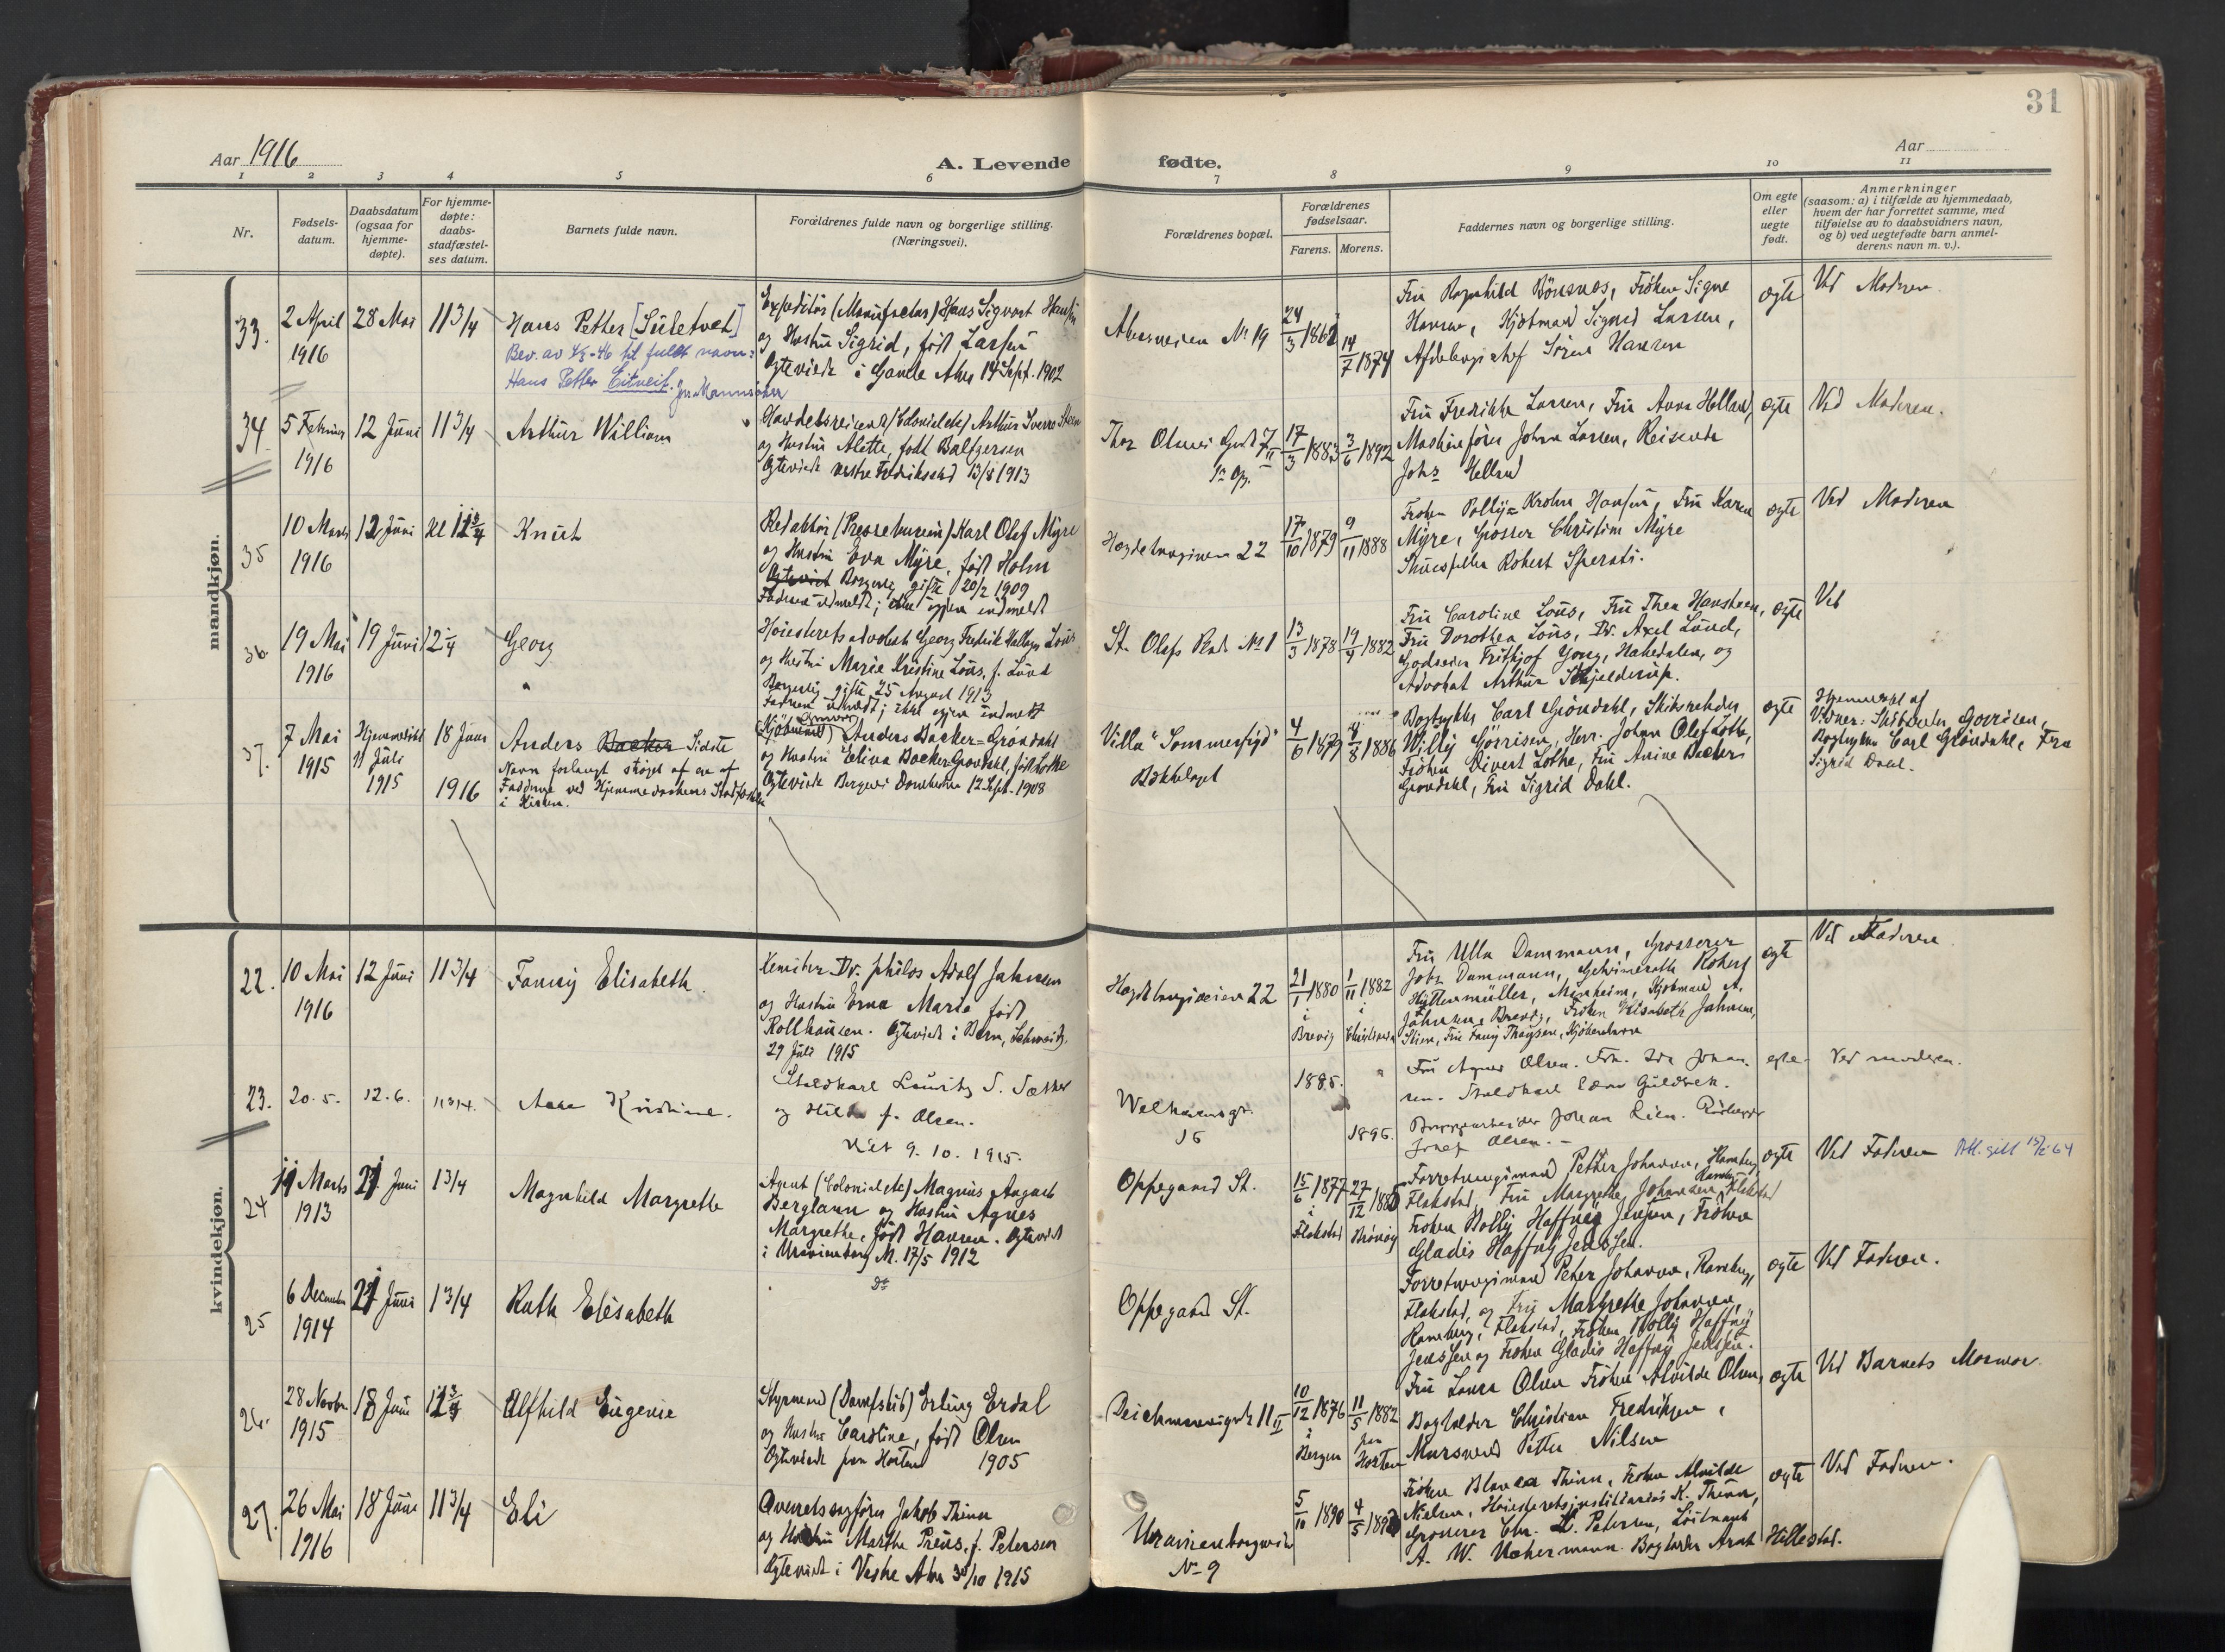 31
Aar 1916
A. Levende
fødte.
Aar
1 2 3 4 5 6 7 8 9 10 11
Nr.
Fødsels-
datum.
Daabsdatum
(ogsaa for
hjemme-
døpte).
For hjemme-
døpte:
daabs-
stadfæstel-
ses datum.
Barnets fulde navn.
Forældrenes fulde navn og borgerlige stilling.
(Næringsvei).
Forældrenes bopæl.
Forældrenes
fødselsaar.
Farens. Morens.
Faddernes navn og borgerlige stilling.
Om egte
eller
uegte
født.
Anmerkninger
(saasom: a) i tilfælde av hjemmedaab,
hvem der har forrettet samme, med
tilføielse av to daabsvidners navn,
og b) ved uegtefødte barn anmel-
derens navn m. v.).
mandkjøn.
33.
2 April
1916
28 Mai
11 3/4
Hans Petter
til fuldt navn:
Hans Petter Eitveit.
Expeditør (Manufactur) Hans Sigvart Hansen
og Hustru Sigrid, født Larsen
Ægteviede i Gamle Aker 14 Sept. 1902
Akersveien No 19
24/3 1862
14/7 1874
Fru Ragnhild Bönsnæs, Frøken Signe
Hansen, Kjøbmand Sigurd Larsen,
Afdelingschef Sören Hansen
ægte
Ved Moderen.
34.
5 Februar
1916
12 Juni
11 3/4
Arthur William
Handelsreisende (Colonial etc) Arthur Sverre Steen
og Hustru Alette, født Balgersen
Ægteviede vestre Fredrikstad 13/8 1913
Thor Olsens Gade 7 II
17/3 1883
3/6 1892
Fru Fredrikke Larsen, Fru Anna Helland,
Maskinfører Johan Larsen, Reisende
Johs Helland
ægte
Ved Moderen.
35
10 Marts
1916
12 Juni
Kl 11 3/4
Knut
Redaktør (Pressebureau) Karl Olaf Myre
og Hustru Eva Myre, født Holm
Ægteviet Borgerlig gifte 20/2 1909
Faderen udmeldt; ikke igjen indmeldt
Hegdehaugsveien 22
17/10 1879
9/11 1888
Frøken Polly Krohn Hansen, Fru Karen
Myre, Grosser Christian Myre
Skuespiller Robert Sperati.
ægte
Ved Moderen
36.
19 Mai
1916
19 Juni
Georg
Høiesterets advokat Georg Fredrik Hallager Lous
og Hustru Marie Kristine Lous, f. Lund
Borgerlig gifte 25 August 1913
Faderen udmeldt; ikke igjen indmeldt
St. Olafs Plads No 1
13/3 1878
19/4 1882
Fru Caroline Lous, Fru Thea Hansteen,
Fru Dorothea Lous, Dr. Axel Lund,
Godseier Frithjof Young, Hakedalen, og
Advokat Arthur Skjelderup.
ægte
Ved
37.
7 Mai
1915
Hjemmedøbt
11 Juli
1915
18 Juni
1916
Anders Backer Sidste
Navn forlangt strøget af en af
Fadderne ved Hjemmedaabens Stadfæstelse
i Kirken.
Anders Backer-Grøndahl
og Hustru Elina Backer-Grøndahl, født Lothe
Ægteviede Bergens Domkirke 12 Sept. 1908
Villa "Sommerfryd"
Bækkelaget
4/6 1879
4/8 1886
Bogtrykker Carl Grøndahl, Skibsreder
Willy Gørrisen, Herr. Johan Olaf Lothe,
Frøken Sivert Lothe, Fru Anine Backer
Grøndahl, Fru Sigrid Dahl.
ægte
Hjemmedøbt af
Vidner: Skibsreder Gørrisen,
Bogtrykker Carl Grøndahl, Fru
Sigrid Dahl.
kvindekjøn.
22.
10 Mai
1916
12 Juni
11 3/4
Fanny Elisabeth.
Kemiker Dr. philos Adolf Jahnsen
og Hustru Erna Marie født
Rollhausen. Ægteviede i Bern, Schweitz,
29 Juli 1915
Hegdehaugsveien 22
21/1 1880
i
Brevig
1/11 1882
i
Fru Ulla Dammann, Grosserer
Johs Dammann, Geheimerath Robert
Hüttenmüller, Menheim, Kjøbmand A.
Jahnsen, Brevig, Frøken Elisabeth Jahnsen,
Skien, Fru Fanny Thaysen, Kjøbenhavn
ægte
Ved Faderen
23.
20.5.
12.6.
11 3/4.
Aase Kristine.
Staldkarl Lauritz S. Sæther
og Hilda f. Olsen.
Viet 9.10.1915.
Welhavensgt.
15
1885.
1895.
Fru Agnes Olsen. Frk. Ida Johan-
sen. Staldkarl Edvin Guldbæk.
Johan Lien.
Olsen.
egte
Ved moderen.
24
11 Marts
1913
21 Juni
1 3/4
Magnhild Margrethe
Agent (Colonial etc) Magnus August
Berglann og Hustru Agnes
Margrethe, født Hansen. Ægteviet
i Uranienborg M. 17/5 1912
Oppegaard St.
15/6 1877
i
Flakstad
27/12 1885
Forretningsmand Petter Johansen, Ramberg,
Flakstad, Fru Margrethe Johansen, Ramberg, Flakstad
Frøken Bolly Haffner Jenssen, Frøken
Gladis Haffny Jenssen.
ægte
Ved Faderen
25
6 December
1914
21 Juni
1 3/4
Ruth Elisabeth
Do
Oppegaard St.
Forretningsmand Peter Johansen, Ramberg,
Flakstad, og Fru Margrethe Johansen,
Ramberg, Flakstad, Frøken Bolly Haffny
Jenssen og Frøken Gladis Haffny Jenssen.
ægte
Ved Faderen.
26.
28 Novbr
1915
18 Juni
Alfhild Eugenie
Styrmand (Dampskib) Erling Erdal
og Hustru Caroline, født Olsen
Ægteviede paa Horten 1905
Deichmannsgade 11 II
10/12 1876
i
Bergen
11/5 1882
paa
Horten
Fru Laura Olsen Frøken Alvilde Olsen,
Bogholder Christian Fredriksen,
Mursvend Petter Nilsen
ægte
Ved Barnets Mormor.
27.
26 Mai
1916
18 Juni
11 3/4
Eli
Overretssagfører Jakob Thinn
og Hustru Marthe Preus, f. Petersen
Ægteviet i Vestre Aker 30/10 1915
Uranienborgveien
No 9
5/10 1890
Frøken Blanca Thinn, Frøken Alvilde
Nielsen, Høiesteretsjustitiarius K. Thinn,
Grosserer Chr. H. Petersen, Løitnant
A. W. Uchermann Bogholder Arnt Hillestad.
ægte
Ved Faderen.